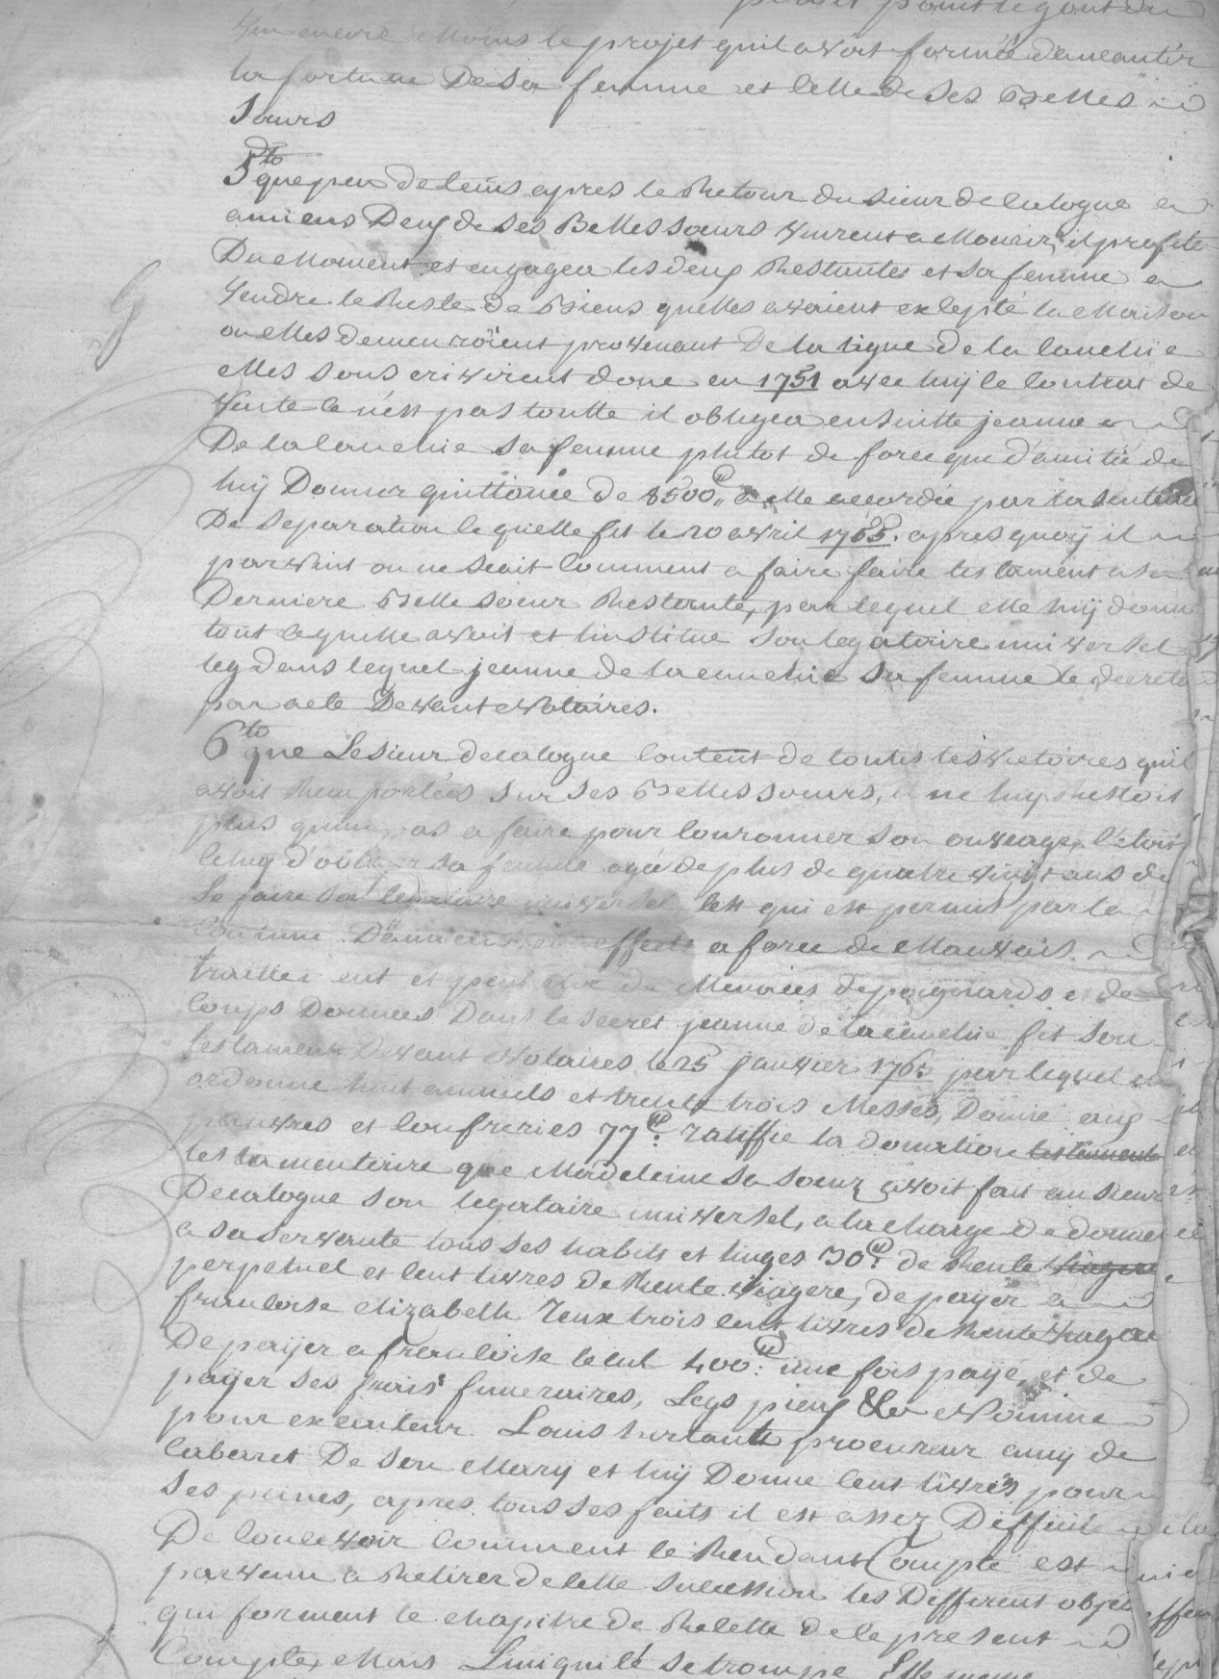 point le gout de
encore moins le projet quil avoit formée daneantir
la fortune De sa femme et celle de ses Belles
Sœurs
5to que peu de tems apres le Retour du sieur decalogne a
amiens Deux de ses Belles sœurs vinrent a Mourir, il profite
Du Moment et engagea les deux Restantes et sa femme a
vendre le Reste de Biens quelles avoient exsepté la Maison
ou elles demeuroient provenant De la ligne de la cauchie
elles souscrivirent donc en 1751 avec luy le contrat de
vente ce n'est pas toutte il obligea ensuitte jeanne
De la cauchie sa femme plutot de force que d'amitié de
luy Donner quittance de 8500 a elle accordée par la sentence
De separation le quelle fit le 20 avril 1765. apres quoy il
parvint on ne scait Comment a faire faire testament a sa
Derniere Belle soeur Restante, par lequel elle luy donne
tout ce quelle avoit et linstitue son legataire universel
leg dans lequel jeanne de la cauchie sa femme le decrete
par acte Devant Notaires.
6to que Le sieur decalogne Content de touttes les victoires quil
avoit Remportées sur ses Belles soeurs, il ne luy Restoit
plus quun pas a faire pour Couronner son ouvrage, c'etoit
celuy d'obliger sa femme agée de plus de quatre vingt ans de
se faire son legataire universel cest qui est permis par la
Coutume D'amiens en effet a force de Mauvais
traittement et peut etre de Menaces de poignards et de
Coups Donnees Dans le secret jeanne de la cauchie fit son
testament Devant Notaires le 25 janvier 1765 par lequel elle
ordonne huit annuels et trente trois Messes, Donne aux
pauvres et Confreries 77. ratiffie la donation testament
testamentaire que Madeleine sa soeur avoit fait au sieur
Decalogne son legataire universel, a la charge de donner
a sa servante tous ses habits et linges 30. de Rente viagere
perpetuel et Cent livres de Rente viagere, de payer a
francoise elizabette trois Cent livres de Rente viagere
De payer a francoise 400. une fois payé, et de
payer ses frais funeraires, Legs pieux &c. Nomme
pour executeur Louis procureur amy de
Cabaret De son Mary et luy Donne Cent livres pour
ses peines, apres tous ses faits il est assez Difficile
De Concevoir Comment le Rendant Compte est
parvenu a Retirer de cette succession les Different objets
qui forment le chapitre de Recette de le present
Compte, Mais Liniquité se trompe Elle meme